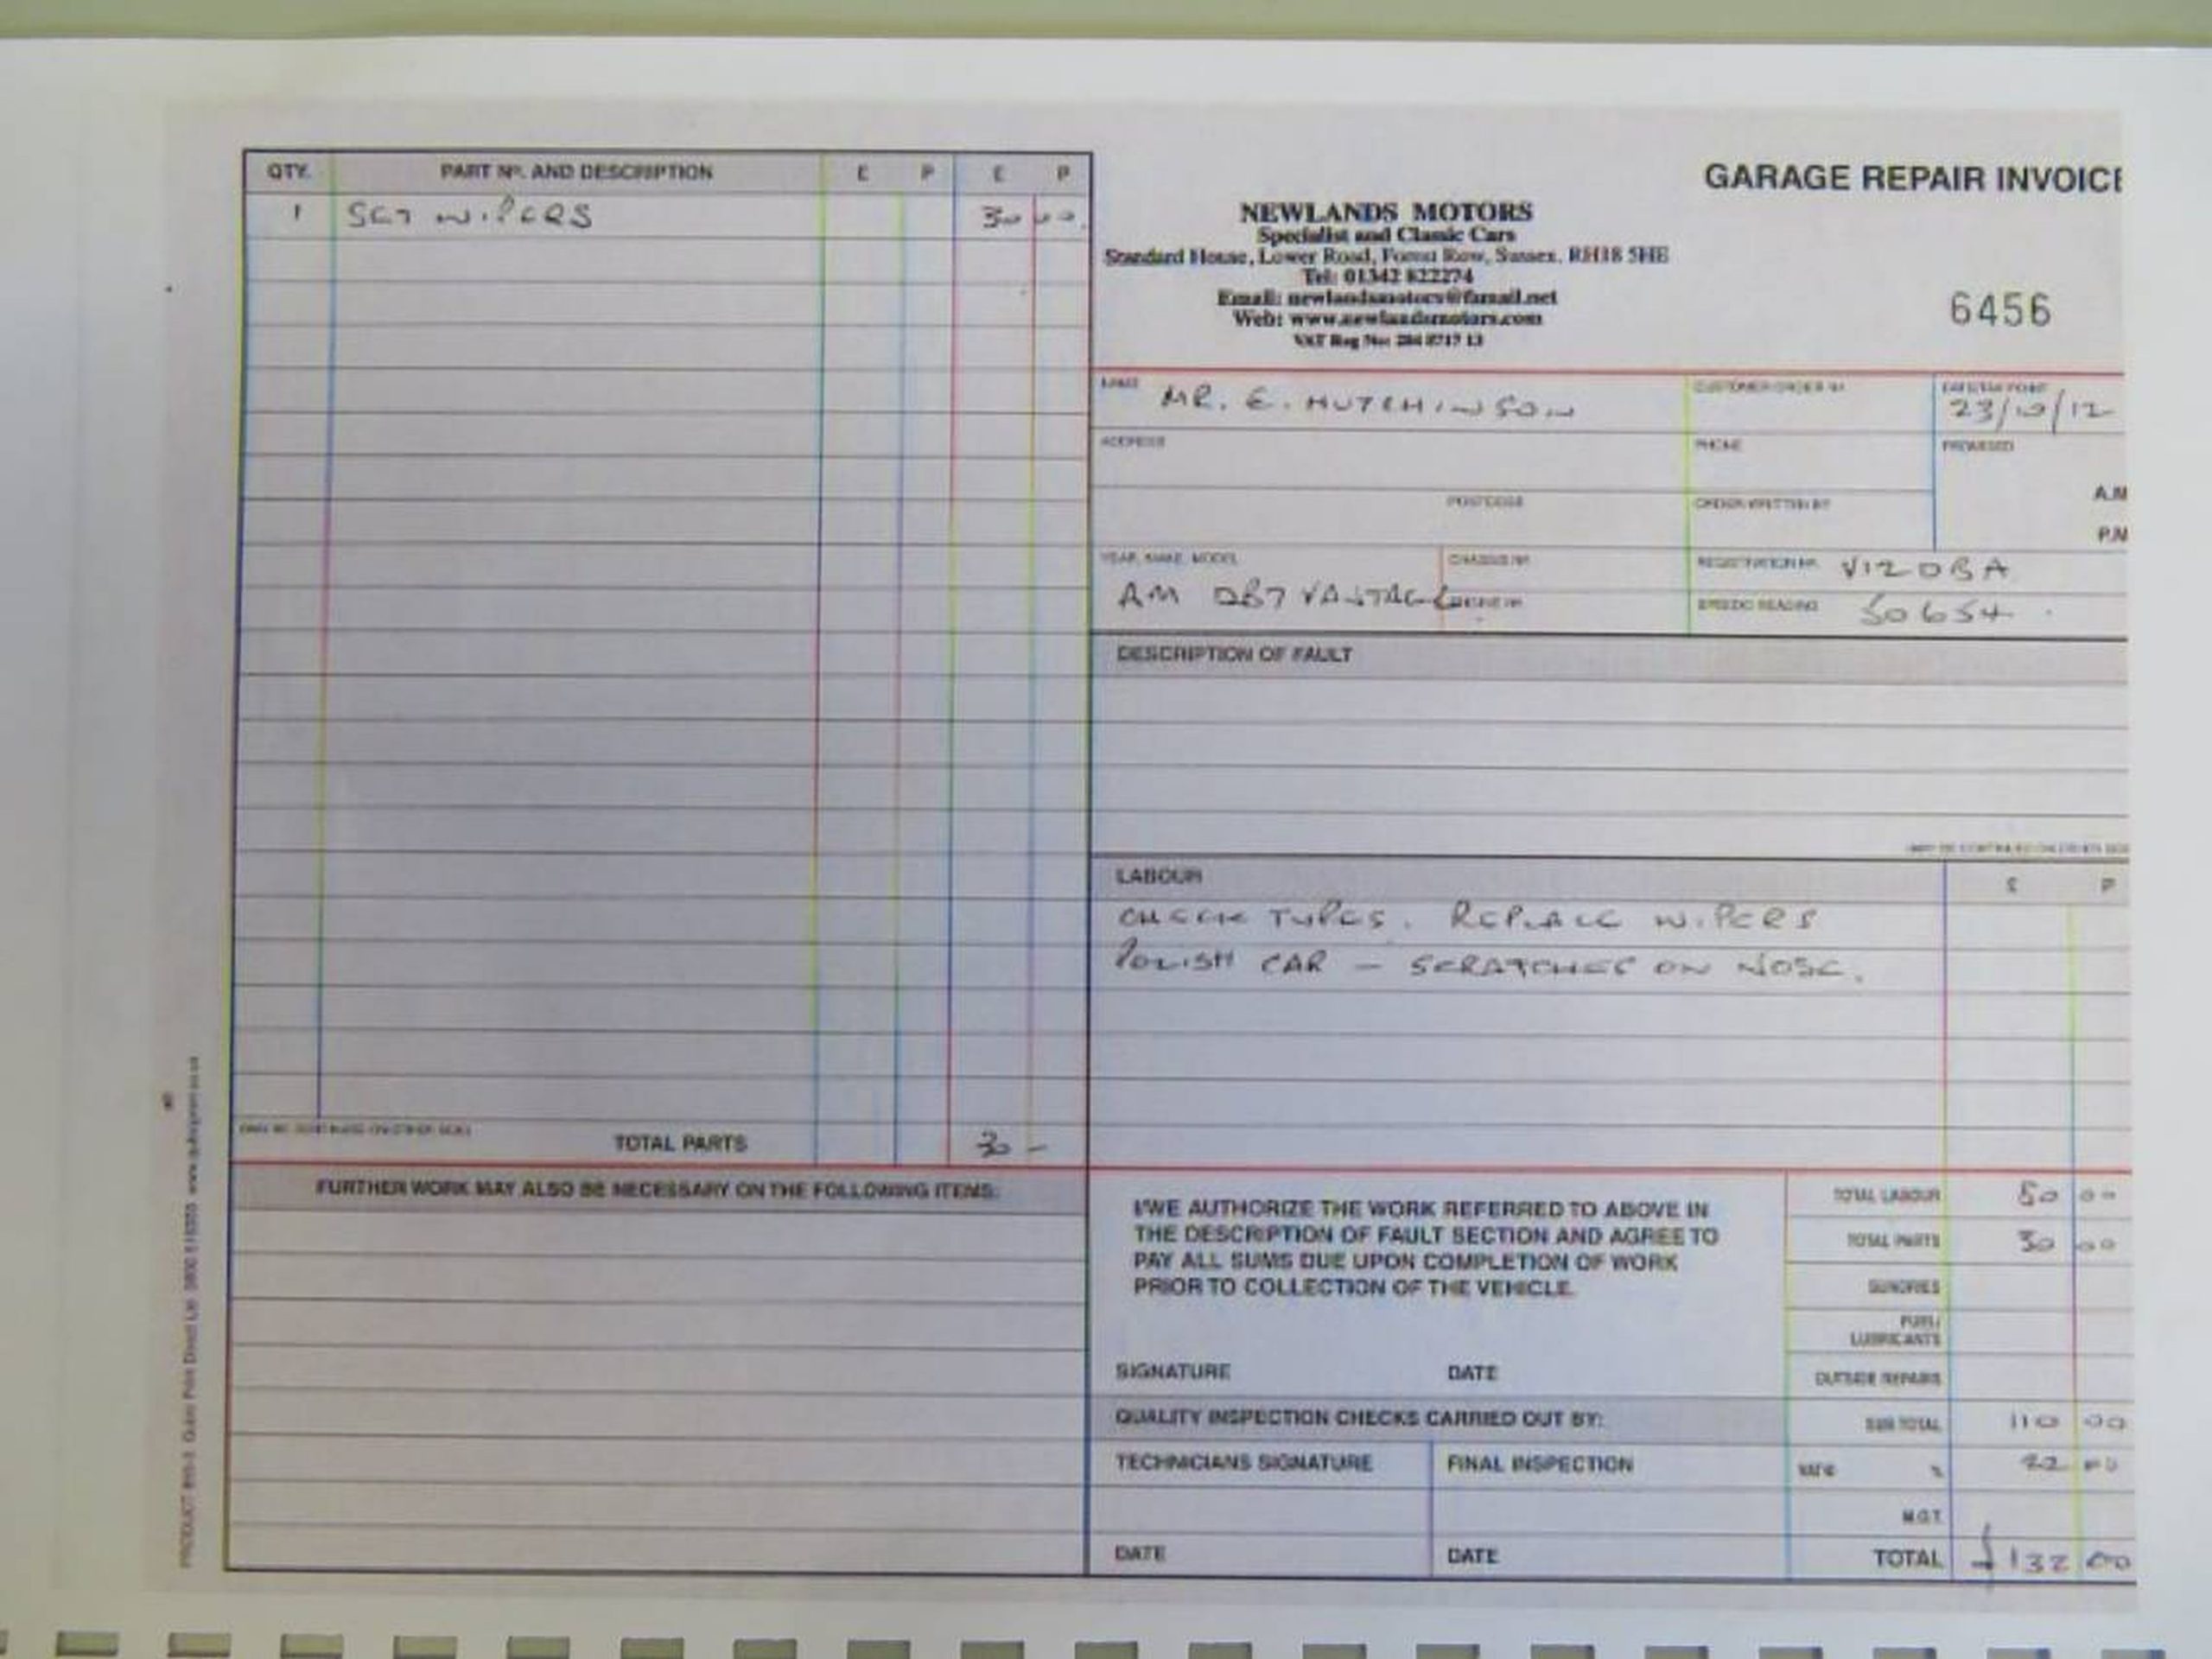 QTY. PART Nº. AND DESCRIPTION £ P £ P
1 SET WIPERS 30 00
TOTAL PARTS 30 -
FURTHER WORK MAY ALSO BE NECESSARY ON THE FOLLOWING ITEMS:
GARAGE REPAIR INVOICE
NEWLANDS MOTORS
Specialist and Classic Cars
Standard House, Lower Road, Forest Row, Sussex, RH18 5HE
Tel: 01342 822274
Email: newlandsmotors@fsmail.net
Web: www.newlandsmotors.com
VAT Reg No: 284 8717 13
6456
NAME MR. E. HUTCHINSON
CUSTOMER ORDER Nº.
DATE/TAX POINT 23/10/12
ADDRESS
PHONE
PROMISED
A.M
P.M
POSTCODE
ORDER WRITTEN BY
YEAR, MAKE, MODEL AM DB7 VANTAGE
CHASSIS Nº.
ENGINE Nº.
REGISTRATION Nº. V12 OBA
SPEEDO READING 50654
DESCRIPTION OF FAULT
LABOUR £ P
CHECK TYRES. REPLACE WIPERS
POLISH CAR - SCRATCHES ON NOSE.
I/WE AUTHORIZE THE WORK REFERRED TO ABOVE IN
THE DESCRIPTION OF FAULT SECTION AND AGREE TO
PAY ALL SUMS DUE UPON COMPLETION OF WORK
PRIOR TO COLLECTION OF THE VEHICLE.
SIGNATURE DATE
QUALITY INSPECTION CHECKS CARRIED OUT BY:
TECHNICIANS SIGNATURE FINAL INSPECTION
DATE DATE
TOTAL LABOUR 80 00
TOTAL PARTS 30 00
SUNDRIES
FUEL/
LUBRICANTS
OUTSIDE REPAIRS
SUB TOTAL 110 00
VAT @ % 22 00
M.O.T.
TOTAL £132 00